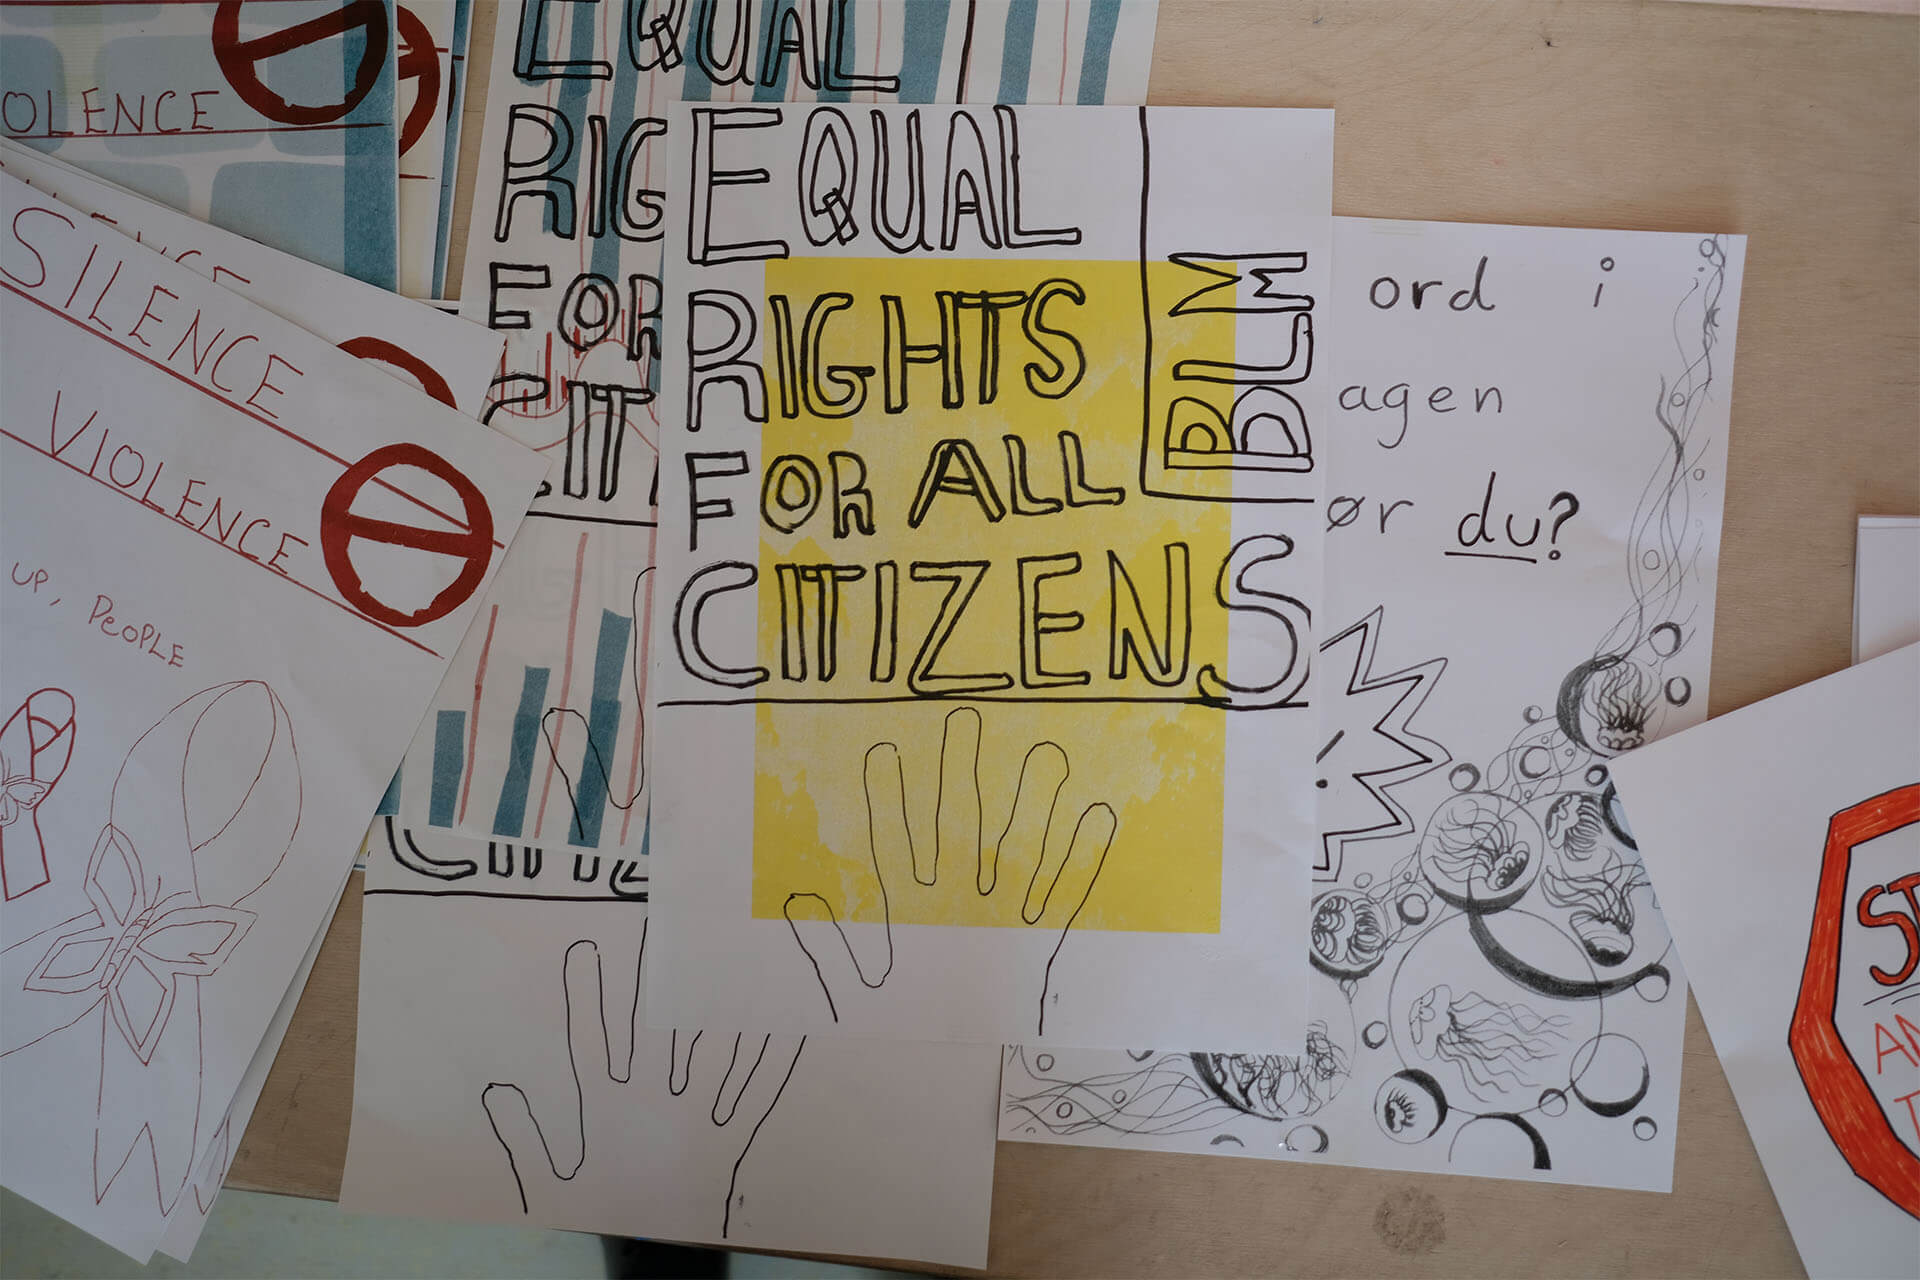 OLENCE
SILENCE
VIOLENCE
UP, PEOPLE
EQUAL
RIG
FOR
CIT
EQUAL
RIGHTS
FOR ALL
CITIZENS
BLM
ord i
agen
ør du?